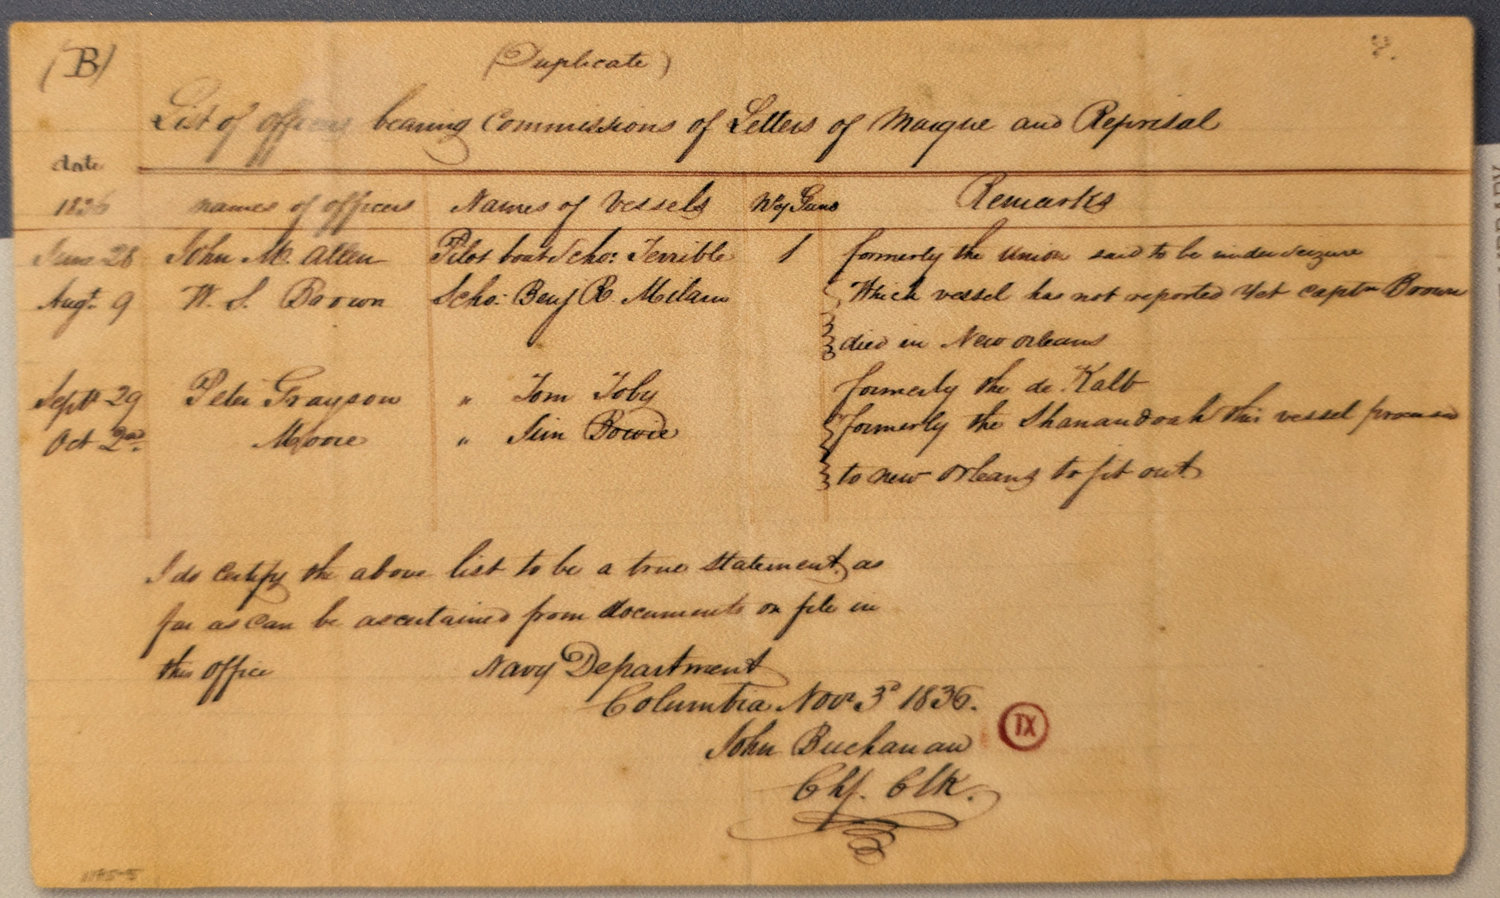 (B) (Duplicate) 2.
List of officers bearing Commissions of Letters of Marque and Reprisal
date
1836 names of officers Names of Vessels No of Guns Remarks
June 28 John M. Allen Pilot boat Scho: Terrible 1 formerly the Union said to be under seizure
Augt. 9 W. S. Brown Scho: Benj R. Milam Which vessel has not reported yet captn Brown
died in New orleans
Septr 29 Peter Grayson " Tom Toby formerly the de Kalb
Oct 2nd. Moore " Jim Bowie formerly the Shanandoah this vessel
to new orleans to fit out
I do certify the above list to be a true statement as
far as can be ascertained from documents on file in
this office Navy Department
Columbia Novr 3d 1836.
John Buchanan
Chf. Clk.
TX